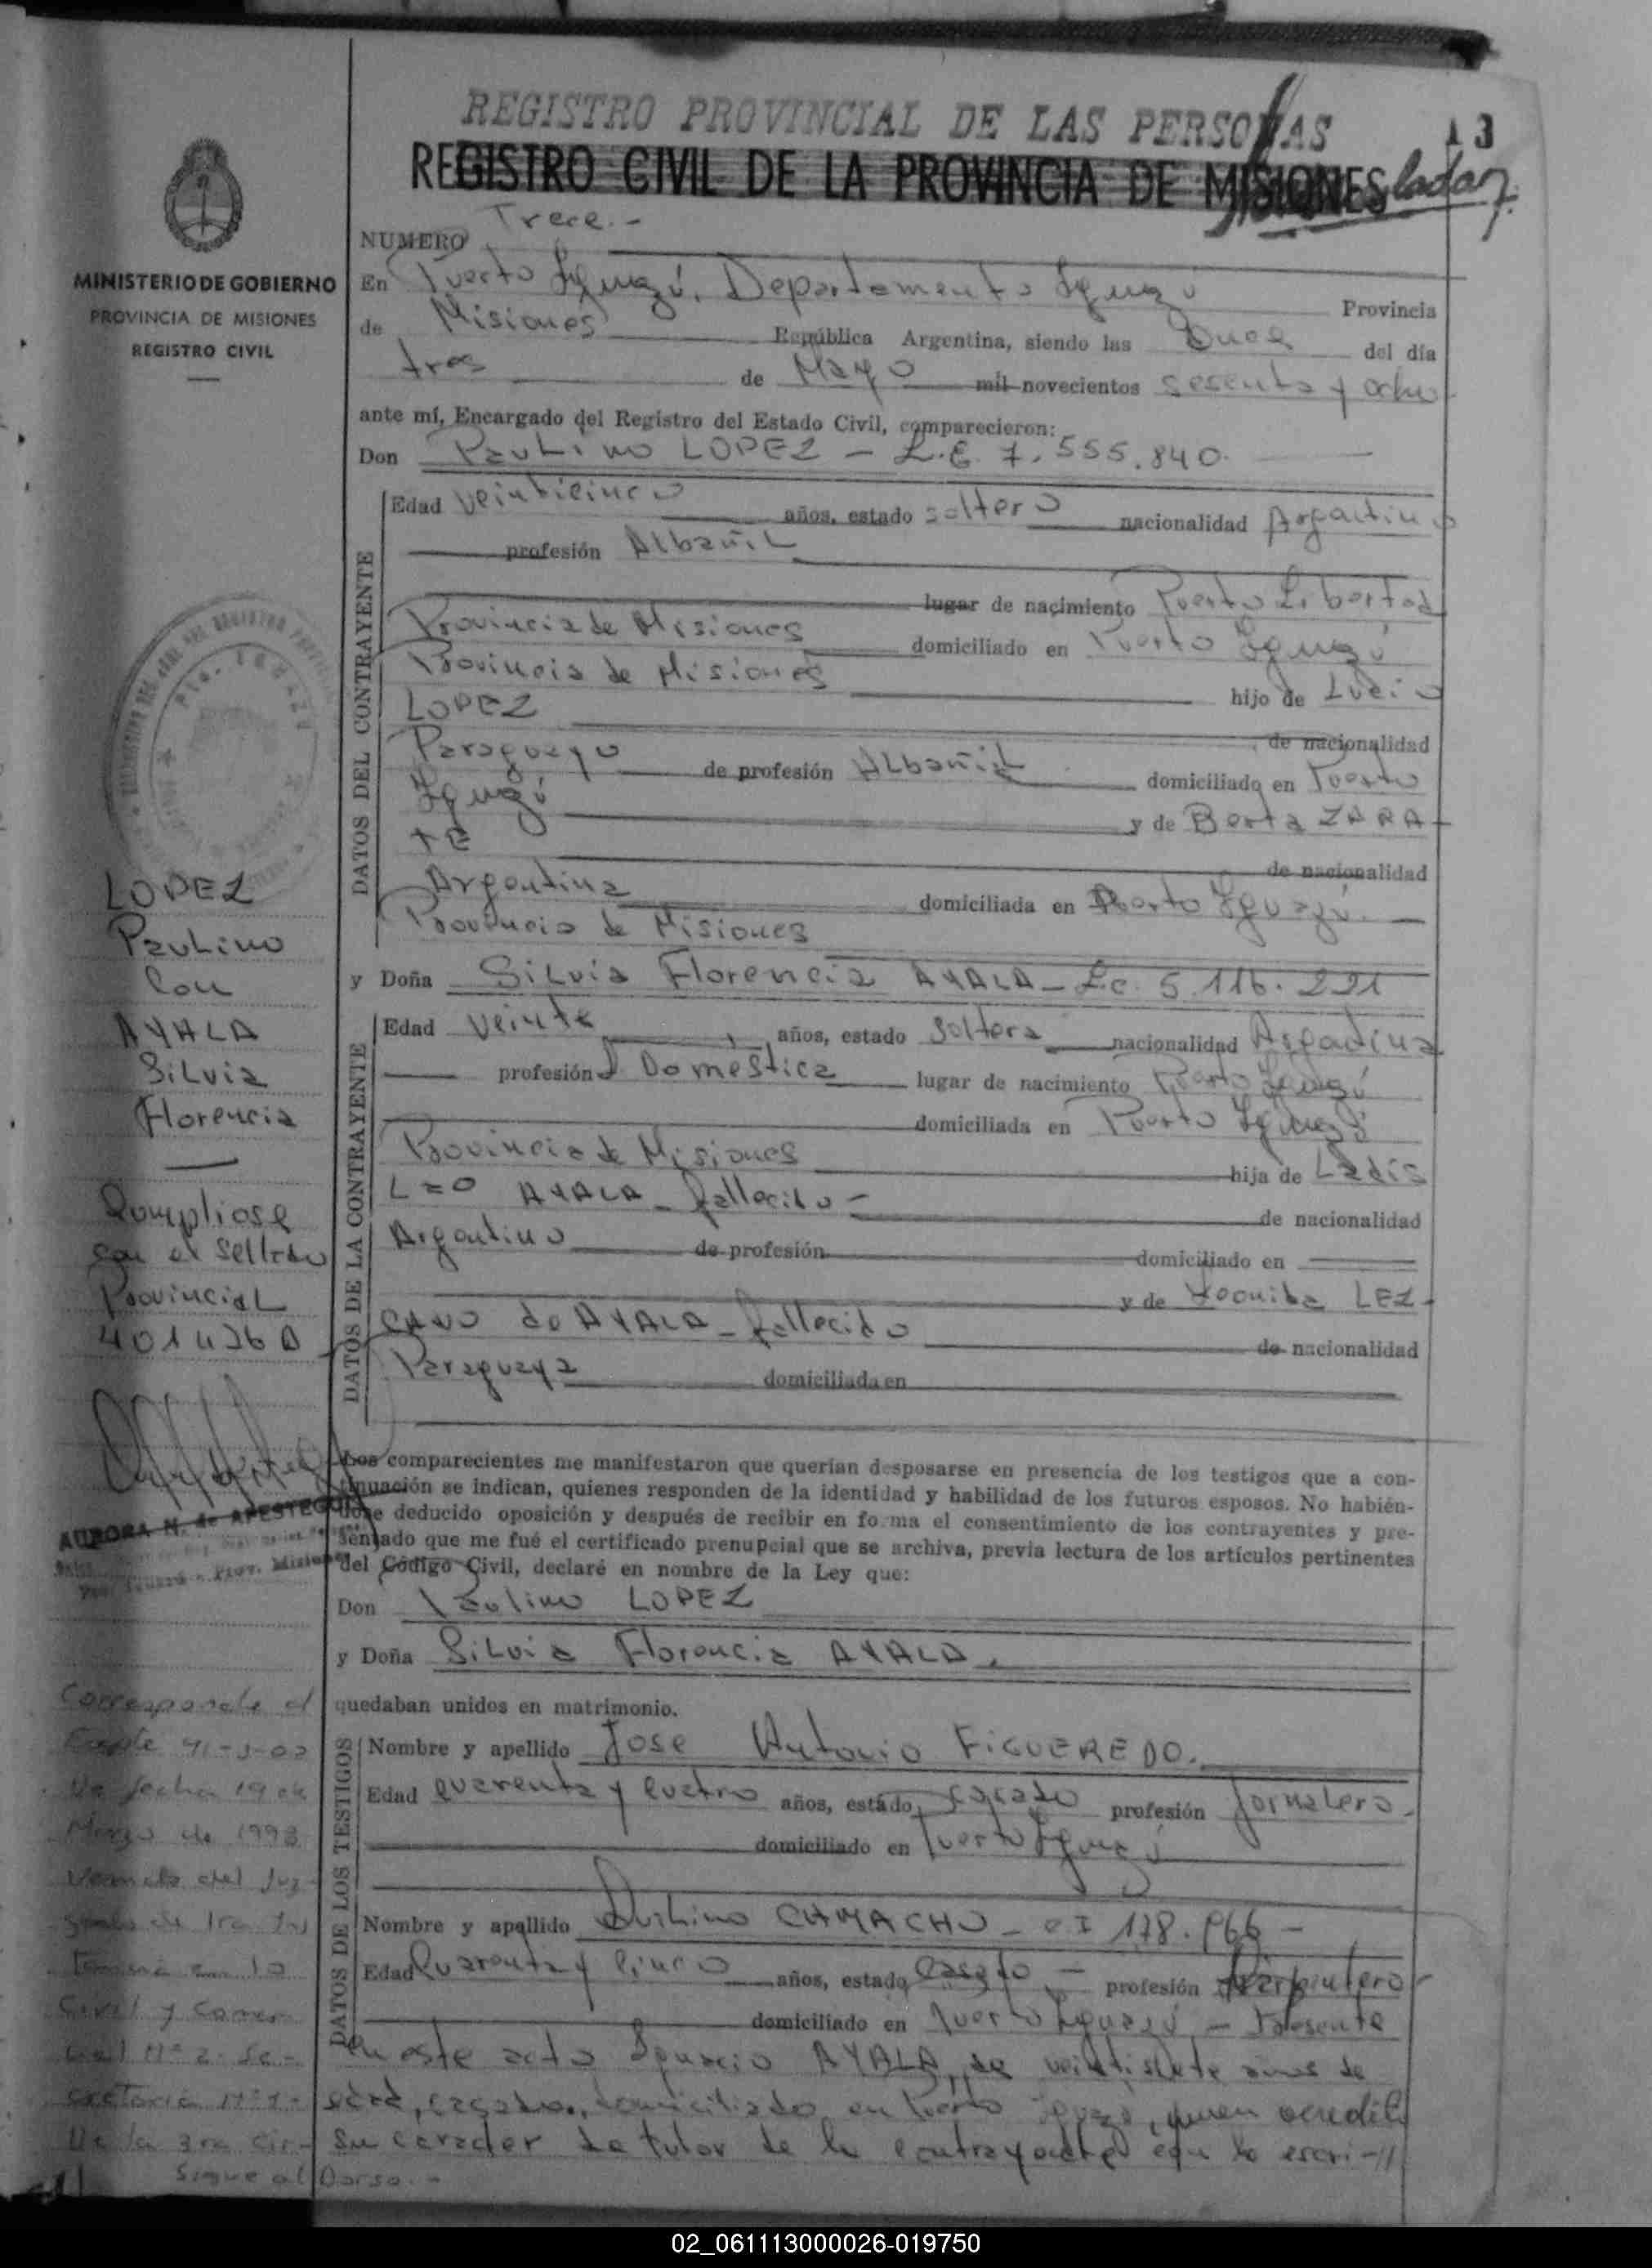 REGISTRO PROVINCIAL DE LAS PERSONAS
13
REGISTRO CIVIL DE LA PROVINCIA DE MISIONES
MINISTERIO DE GOBIERNO
PROVINCIA DE MISIONES
REGISTRO CIVIL
NUMERO Trece.-
En Puerto Iguazú, Departamento Iguazú Provincia
de Misiones República Argentina, siendo las Once del día
tres de Mayo mil novecientos sesenta y ocho
ante mí, Encargado del Registro del Estado Civil, comparecieron:
Don Paulino LOPEZ - L.E. 7.555.840.
DATOS DEL CONTRAYENTE
Edad veinticinco años, estado soltero nacionalidad Argentino
profesión Albañil
lugar de nacimiento Puerto Libertad
Provincia de Misiones domiciliado en Puerto Iguazú
Provincia de Misiones hijo de Lucio
LOPEZ de nacionalidad
Paraguayo de profesión Albañil domiciliado en Puerto
Iguazú y de Berta ZARA-
TE de nacionalidad
Argentina domiciliada en Puerto Iguazú.
Provincia de Misiones
y Doña Silvia Florencia AYALA - L.c. 5.116.221
DATOS DE LA CONTRAYENTE
Edad veinte años, estado Soltera nacionalidad Argentina
profesión Domestica lugar de nacimiento Puerto Iguazú
domiciliada en Puerto Iguazú
Provincia de Misiones hija de Ladis
Lao AYALA - fallecido - de nacionalidad
Argentino de profesión domiciliado en
y de LEZ-
CANO de AYALA - fallecida de nacionalidad
Paraguaya domiciliada en
Los comparecientes me manifestaron que querían desposarse en presencia de los testigos que a con-
tinuación se indican, quienes responden de la identidad y habilidad de los futuros esposos. No habién-
dose deducido oposición y después de recibir en forma el consentimiento de los contrayentes y pre-
sentado que me fué el certificado prenupcial que se archiva, previa lectura de los artículos pertinentes
del Código Civil, declaré en nombre de la Ley que:
Don Paulino LOPEZ
y Doña Silvia Florencia AYALA.
quedaban unidos en matrimonio.
DATOS DE LOS TESTIGOS
Nombre y apellido Jose Antonio FIGUEREDO.
Edad cuarenta y cuatro años, estado casado profesión Jornalero.
domiciliado en Puerto Iguazú
Nombre y apellido CAMACHO - C I 178.966 -
Edad Cuarenta y cinco años, estado Casado - profesión Carpintero
domiciliado en Puerto Iguazú - Presente
en este acto Ignacio AYALA, de veintisiete años de
edad, casado, domiciliado en Puerto Iguazú, quien acredita
su caracter de tutor de la contrayente con la escri-//
LOPEZ
Paulino
Con
AYALA
Silvia
Florencia
Cumpliose
con el Sellado
Provincial
AURORA N. de APESTEGUI
Corresponde al
Expte
De fecha 19 de
Marzo de 1993
del Juz-
gado de 1ra Ins
tancia en lo
Civil y Comer
cial Nº 2. Se-
cretaria Nº 1-
De la 3ra Cir-
Sigue al Dorso.-
02_061113000026-019750